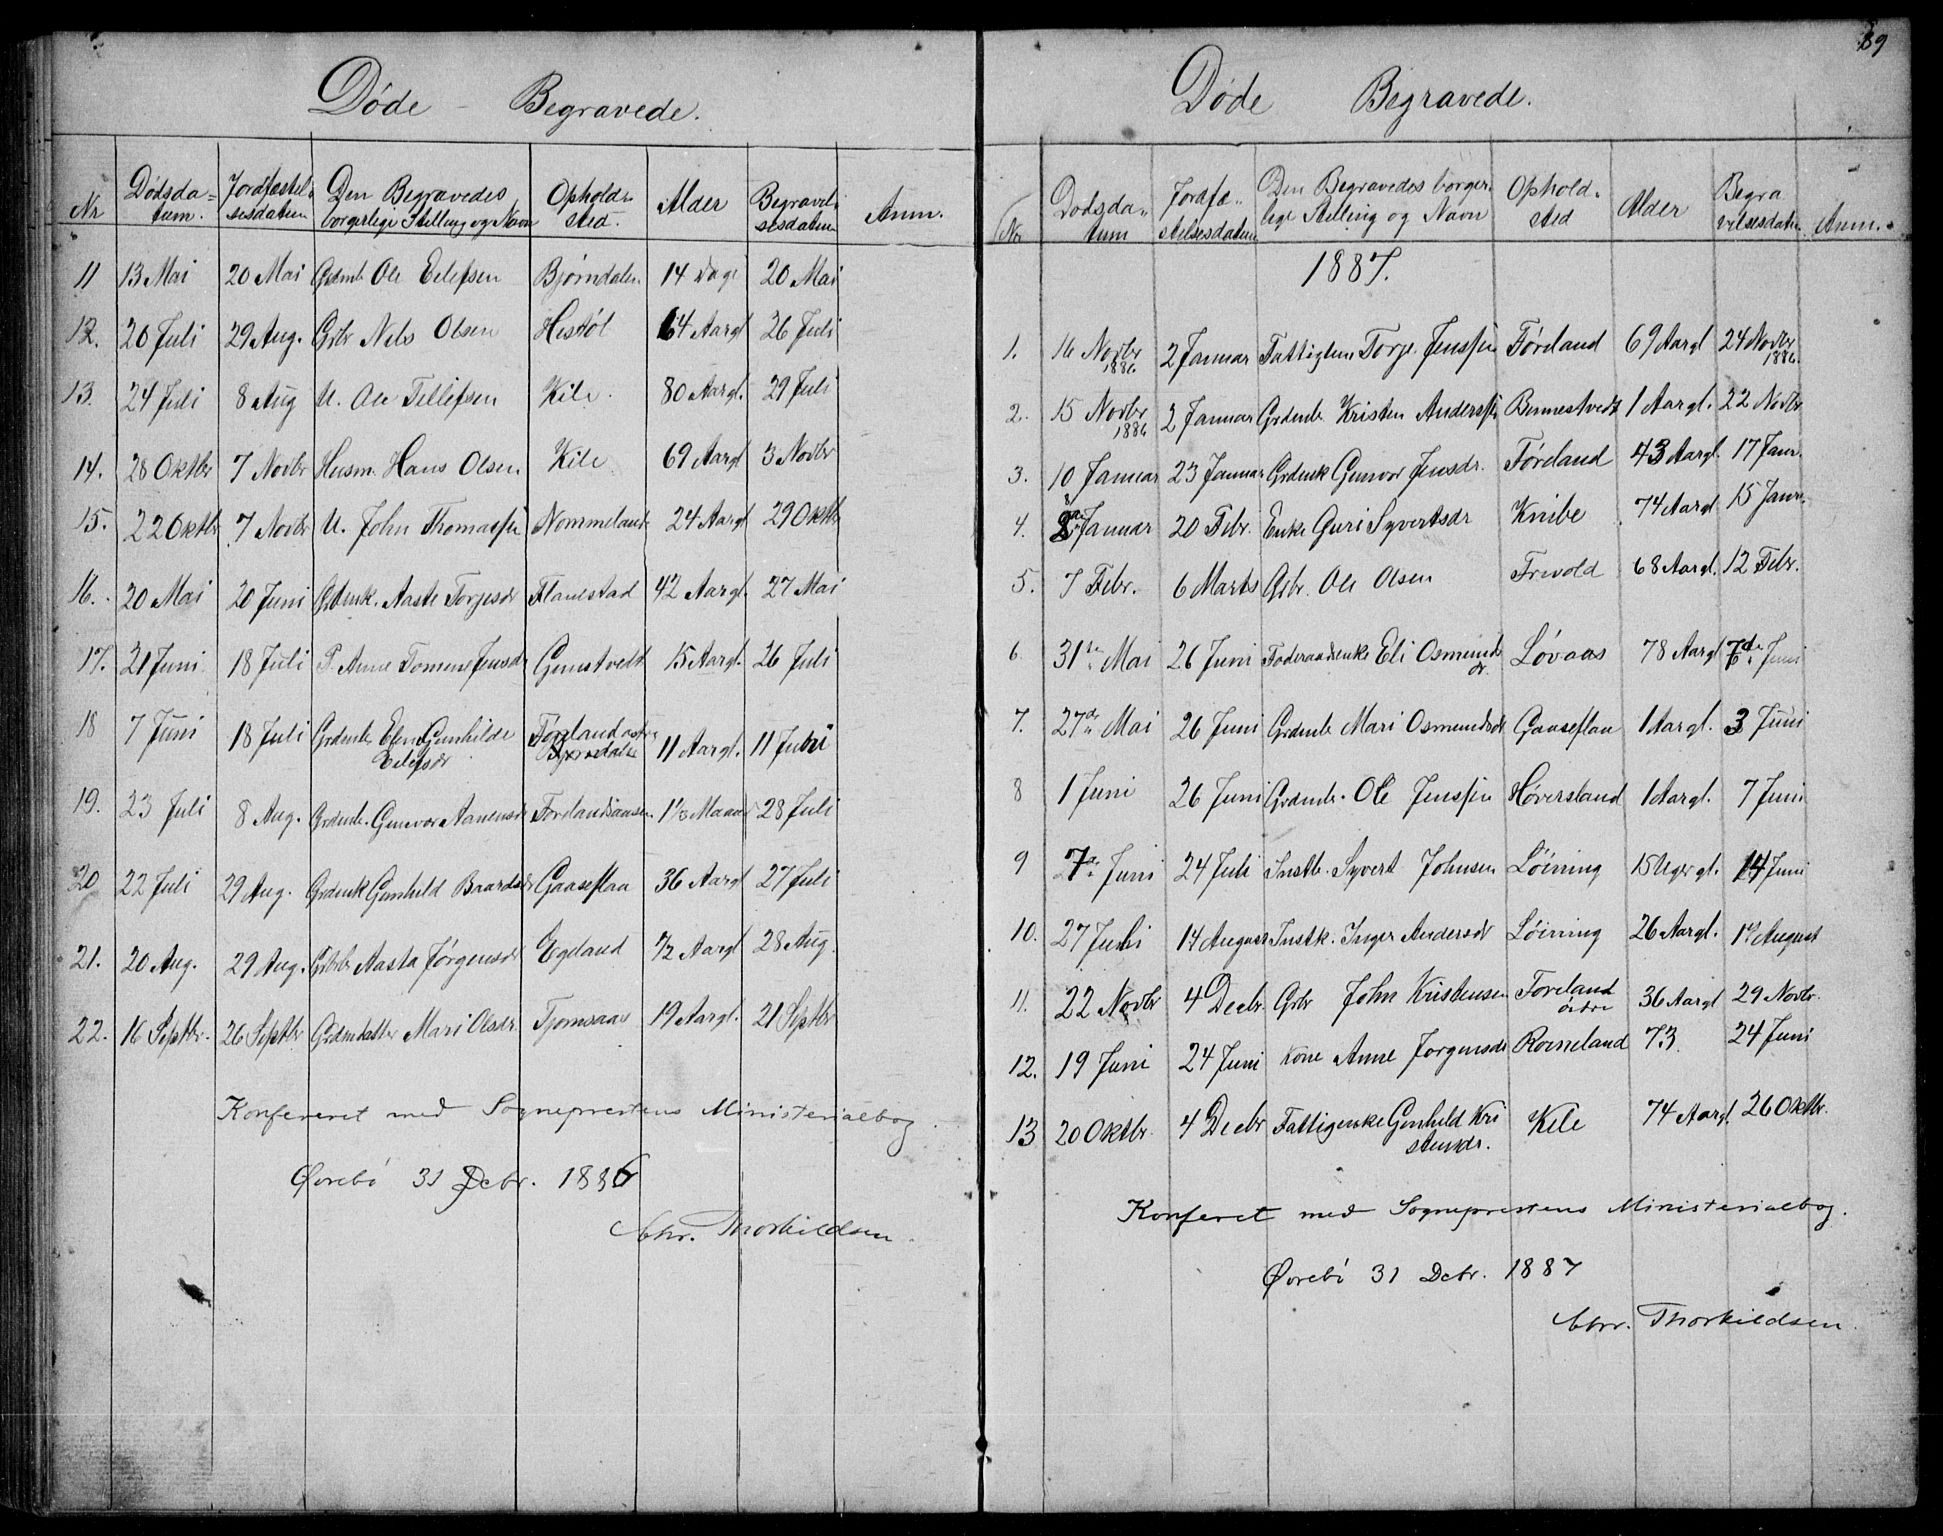 89
Døde - Begravede.
Nr Dødsdatum. Jordfæstelsesdatum Den Begravedes borgerlige Stilling og Navn Opholdsted. Alder Begravelsesdatum Anm.
11 13 Mai 20 Mai Grdmb Ole Eilefsen Bjørndalen 14 Dage 20 Mai
12. 20 Juli 29 Aug. Grbr Nels Olsen Hestøl 64 Aargl 26 Juli
13. 24 Juli 8 Aug U. Ole Tellefsen Kile. 80 Aargl. 29 Juli
14. 28 Oktbr 7 Novbr Husm. Hans Olsen Kile 69 Aargl 3 Novbr
15. 22 Oktbr 7 Novbr U. John Thomassen Nommeland 24 Aargl 29 Oktbr
16. 20 Mai 20 Juni Grdmk. Aaste Torjesdr Flanestad 42 Aargl. 27 Mai
17. 21 Juni 18 Juli P. Anne Tomene Jensdr Gunstvedt 15 Aargl. 26 Juli
18 7 Juni 18 Juli Grdmb. Elen Gunhilde Førland østre
Eilefsdr Bjørndalen 11 Aargl. 11 Juni
19. 23 Juli 8 Aug. Grdmb. Gunvor Aanensdr 28 Juli
20 22 Juli 29 Aug. Grdmk Gunhild Baardsdr Gaaseflaa 36 Aargl 27 Juli
21. 20 Aug. 29 Aug. Grbrb Aasta Jørgensdr Egeland 1/2 Aargl 28 Aug.
22. 16 Septbr. 26 Septbr Grdmdatter Mari Olsdr. Tjomsaas 19 Aargl. 21 Septbr
Konfereret med Sogneprestens Ministerialbog.
Øvrebø 31 Debr. 1886
Chr. Thorkildsen.
Døde Begravede.
Nr. Dødsdatum Jordfæstelsesdatum Den Begravedes borgerlige Stilling og Navn Opholdsted Alder Begravelsesdatum Anm.
1887.
1. 16 Novbr 1886 2 Januar Fattiglem Torje Jenssen Førland 69 Aargl 24 Novbr 1886
2. 15 Novbr 1886 2 Januar Grdmb. Kristen Anderssen Bennestvedt 1 Aargl. 22 Novbr
3. 10 Januar 23 Januar Grdmk Gunvor Jensdr. Føreland 43 Aargl. 17 Janr.
4. 8de Januar 20 Febr. Enke Guri Syvertsdr Knibe 74 Aargl 15 Janr.
5. 7 Febr. 6 Marts Grbr. Ole Olsen Frivold 68 Aargl. 12 Febr.
6. 31te Mai 26 Juni Føderaadsenke Eli Osmundsdr. Løvaas 78 Aargl 7de Juni
7. 27de Mai 26 Juni Grdmb Mari Osmundsdr Gaaseflaa 1 Aargl. 3 Juni
8 1 Juni 26 Juni Grdmb. Ole Jenssen Høversland 1 Aargl. 7 Juni
9 7de Juni 24 Juli Instb. Syvert Johnsen Løining 15 Uger gl. 14 Juni
10. 27 Juli 14 August Instk. Inger Andersdr Løining 26 Aargl. 1ste August
11. 22 Novbr 4 Decbr. Grbr John Kristensen Føreland
østre 36 Aargl 29 Novbr.
12. 19 Juni 24 Juni Kone Anne Jørgensdr Rosseland 73 24 Juni
13 20 Oktbr. 4 Decbr Fattigenke Gunhild Kri
stensdr. Kile 74 Aargl. 26 Oktbr.
Konferet med Sogneprestens Ministerialbog.
Øvrebø 31 Debr. 1887
Chr. Thorkildsen.